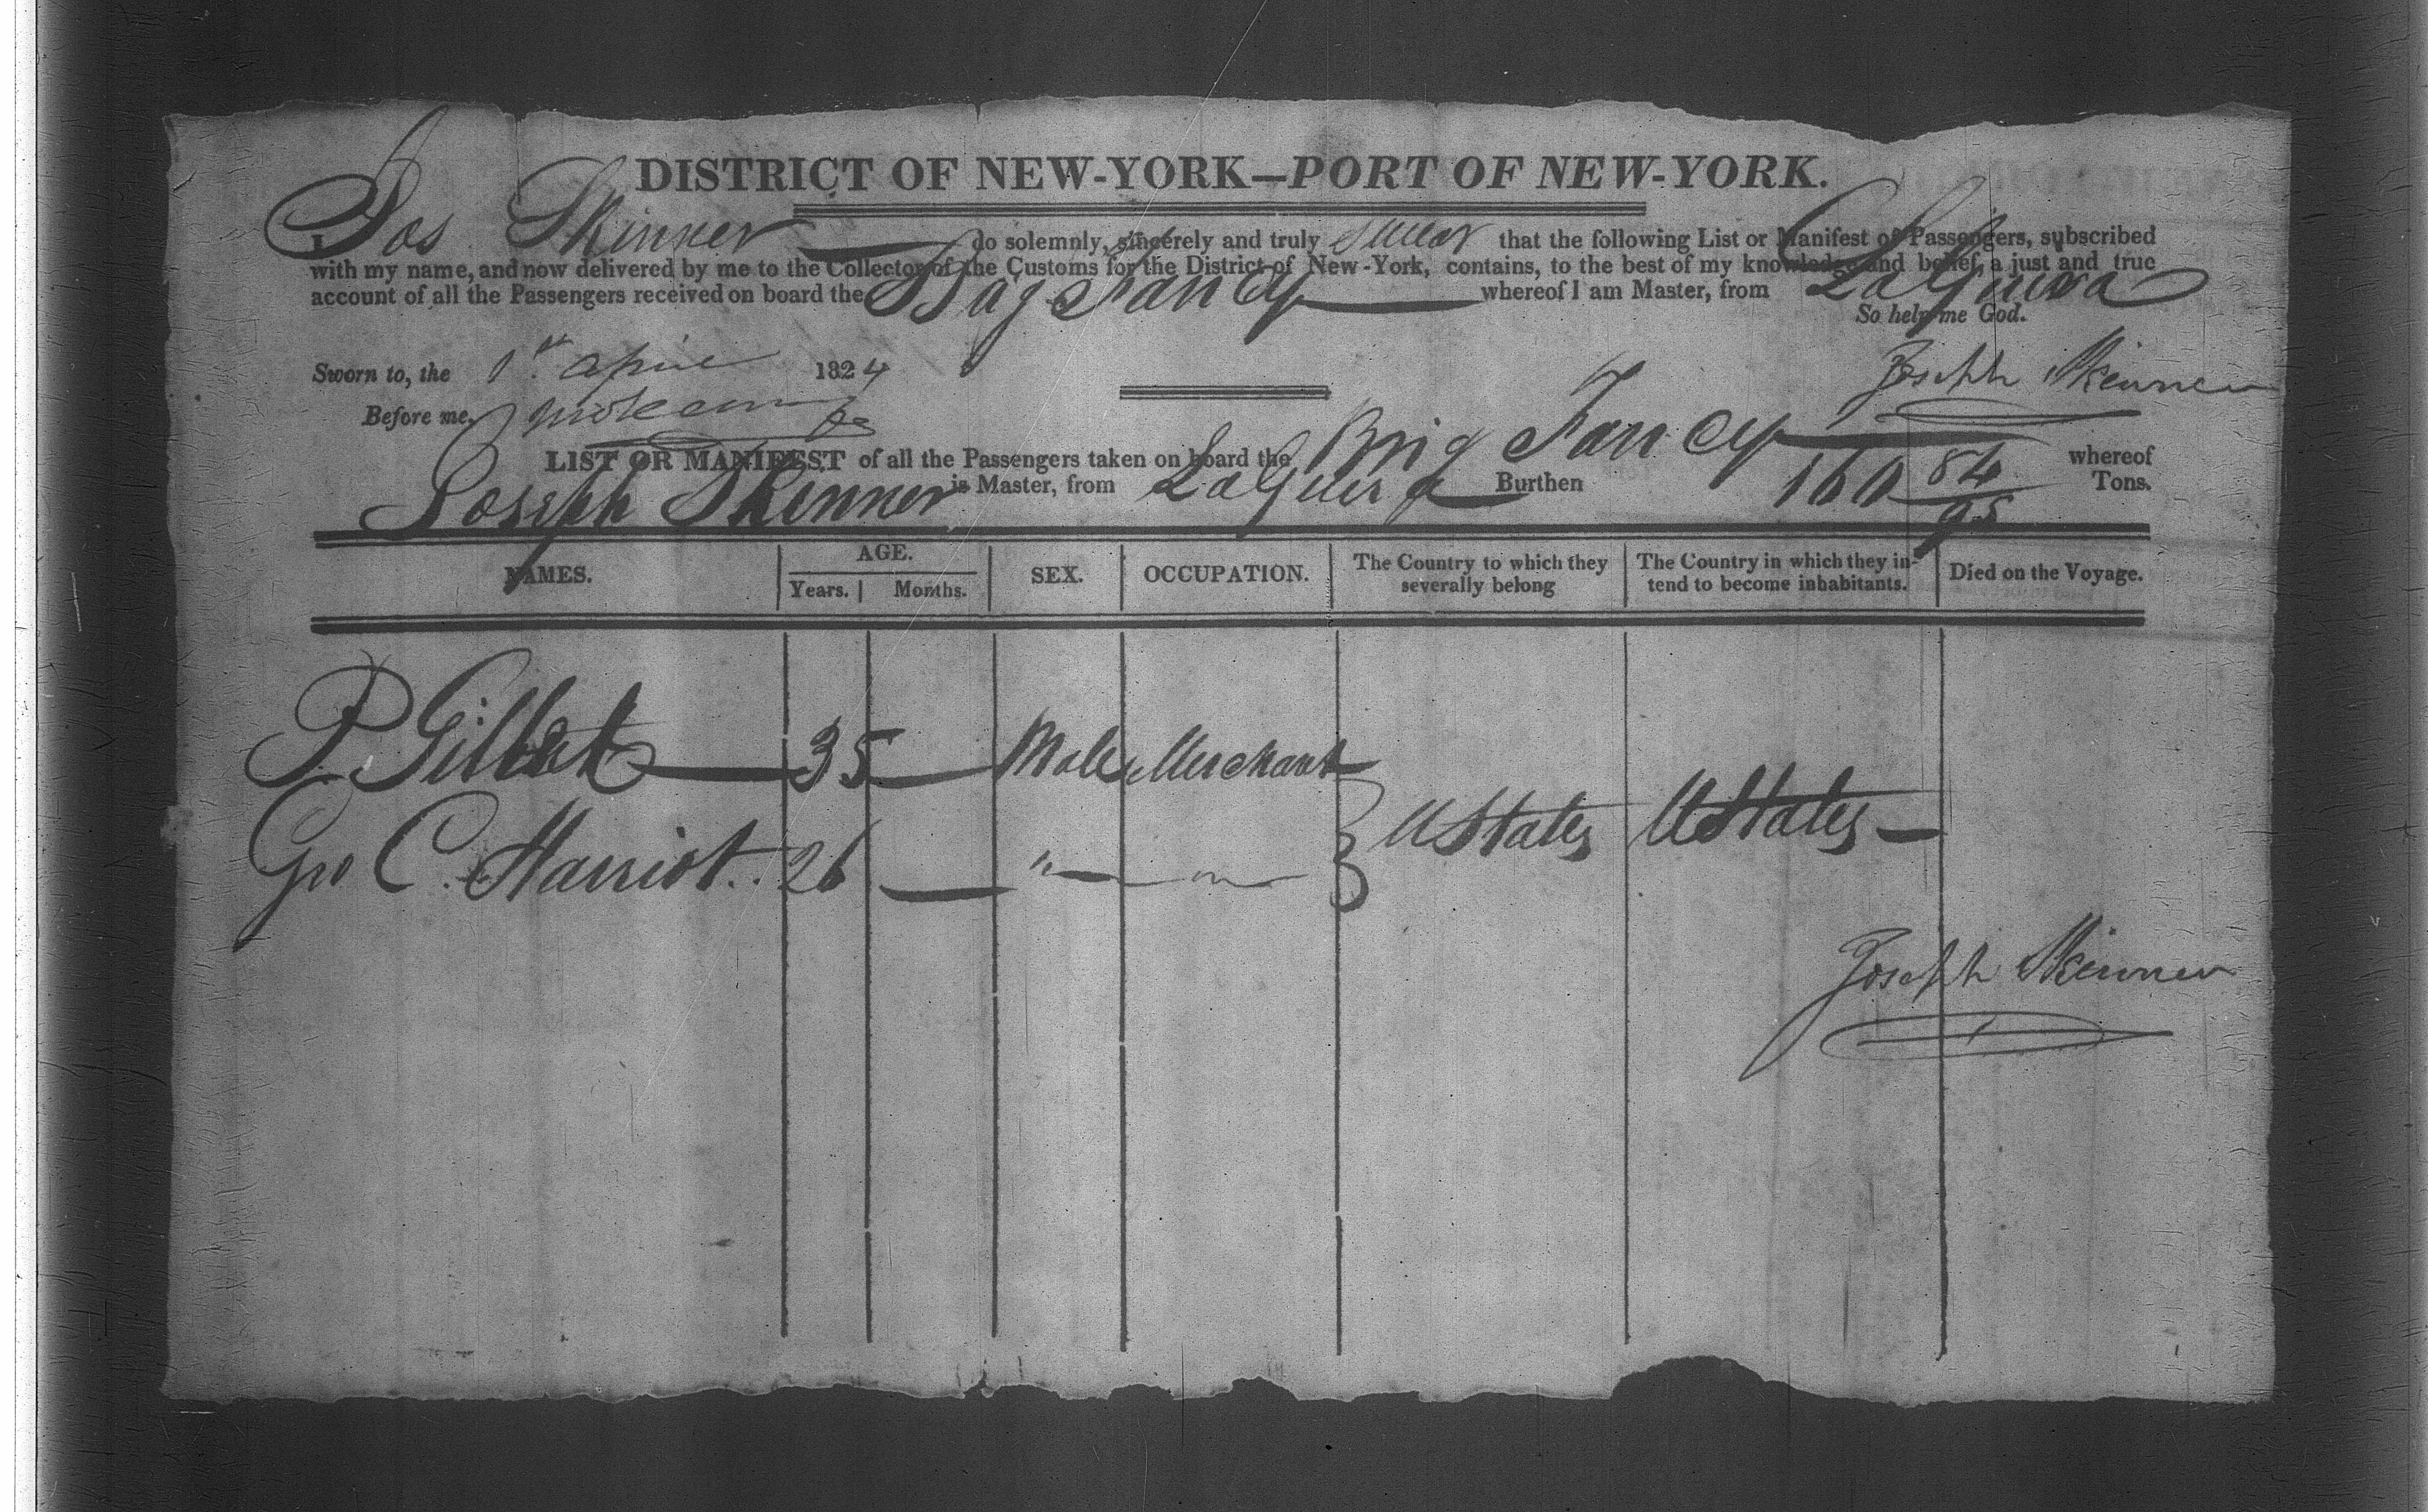 DISTRICT OF NEW-YORK—PORT OF NEW-YORK.
I Jos Skinner do solemnly, sincerely and truly swear that the following List or Manifest of Passengers, subscribed
with my name, and now delivered by me to the Collector of the Customs for the District of New-York, contains, to the best of my knowledge and belief, a just and true
account of all the Passengers received on board the Brig Fancy whereof I am Master, from LaGuira
So help me God.
Sworn to, the 1st April 1824 Joseph Skinner
Before me,
LIST OR MANIFEST of all the Passengers taken on board the Brig Fancy whereof
Joseph Skinner is Master, from LaGuira Burthen 160 84/95 Tons.
NAMES. AGE. Years. Months. SEX. OCCUPATION. The Country to which they severally belong The Country in which they intend to become inhabitants. Died on the Voyage.
P Gillet 35 Male Merchant
Geo C. Harriot 26 " " UStates UStates
Joseph Skinner